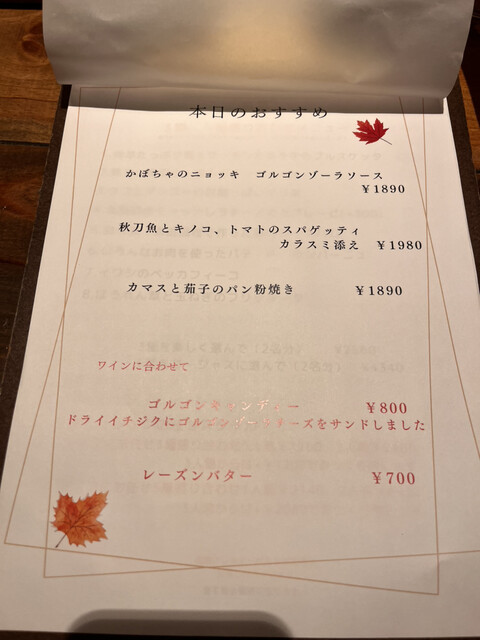 本日のおすすめ
かぼちゃのニョッキ ゴルゴンゾーラソース
¥1890
秋刀魚とキノコ、トマトのスパゲッティ
カラスミ添え ¥1980
カマスと茄子のパン粉焼き ¥1890
ワインに合わせて
ゴルゴンキャンディー ¥800
ドライイチジクにゴルゴンゾーラチーズをサンドしました
レーズンバター ¥700